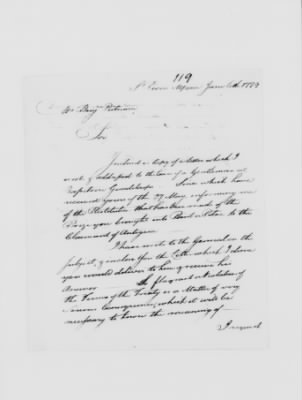 119
St Pierre June 6th 1779
Mr Benjn Putnam
Sir
Inclosed a Copy of a Letter which I
to the Care of a Gentleman at
Guadaloupe Since which have
received yours of the 27 May informing me
of the Restitution that has been made of the
Prize you brought into Port to the
Claimant of Antigua
I have wrote to the General on the
Subject, & inclose you the Letter which I desire
you would deliver to him & receive his
Answer so flagrant a Violation of
the Terms of the Treaty is a Matter of very
serious Consequence, which it will be
necessary to know the meaning of
I request